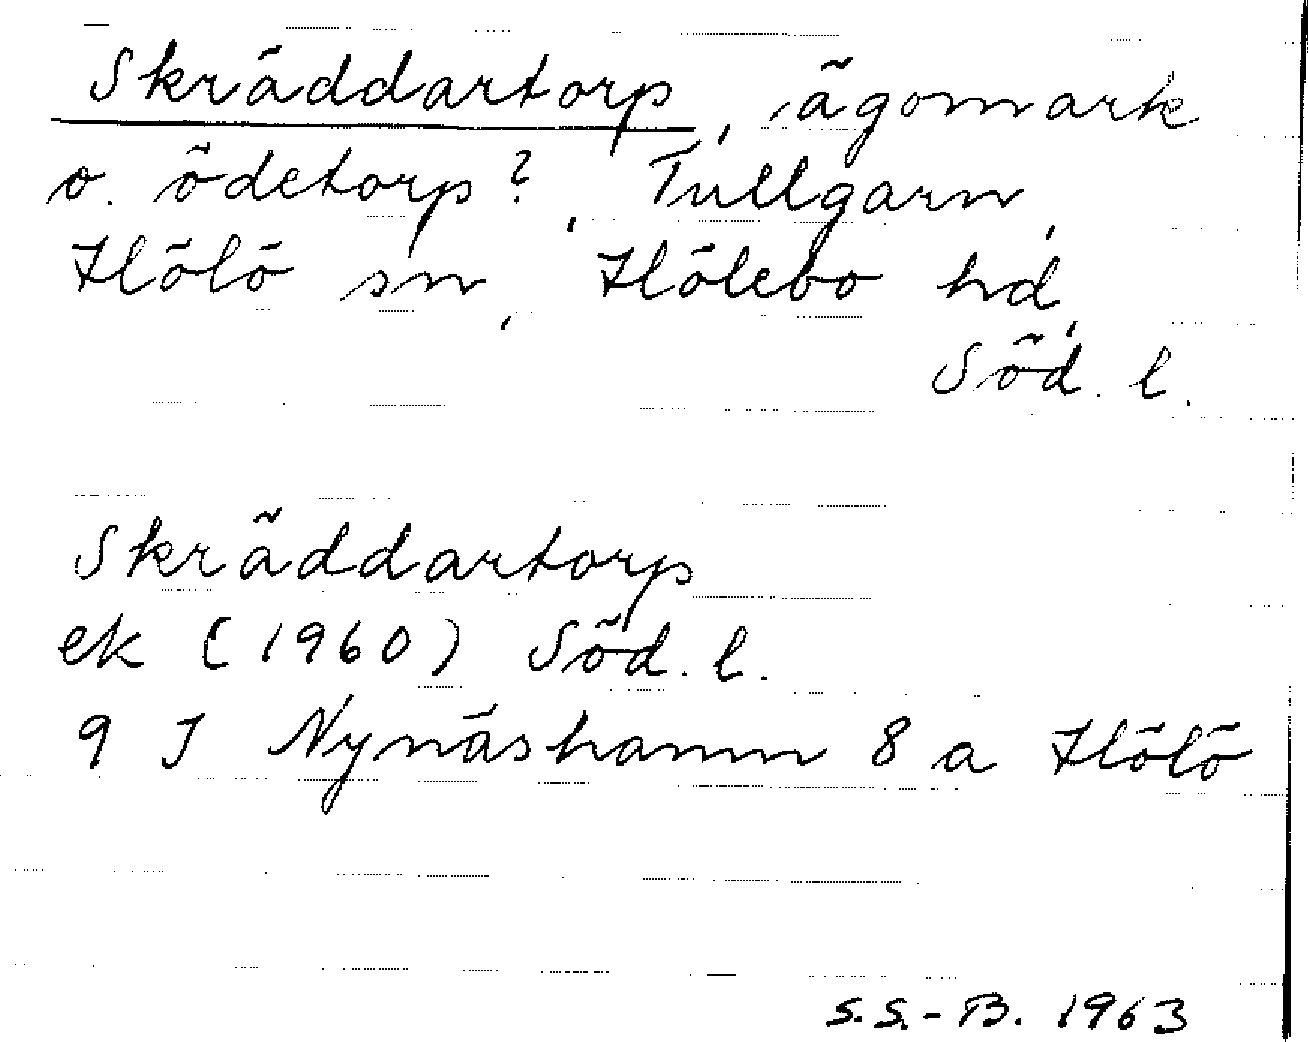 Skräddartorp, ägomark
o. ödetorp?, Tullgarn,
Hölö sn, Hölebo hd,
Söd. l.
Skräddartorp
ek (1960) Söd. l.
9 I Nynäshamn 8 a Hölö
S.S.-B. 1963